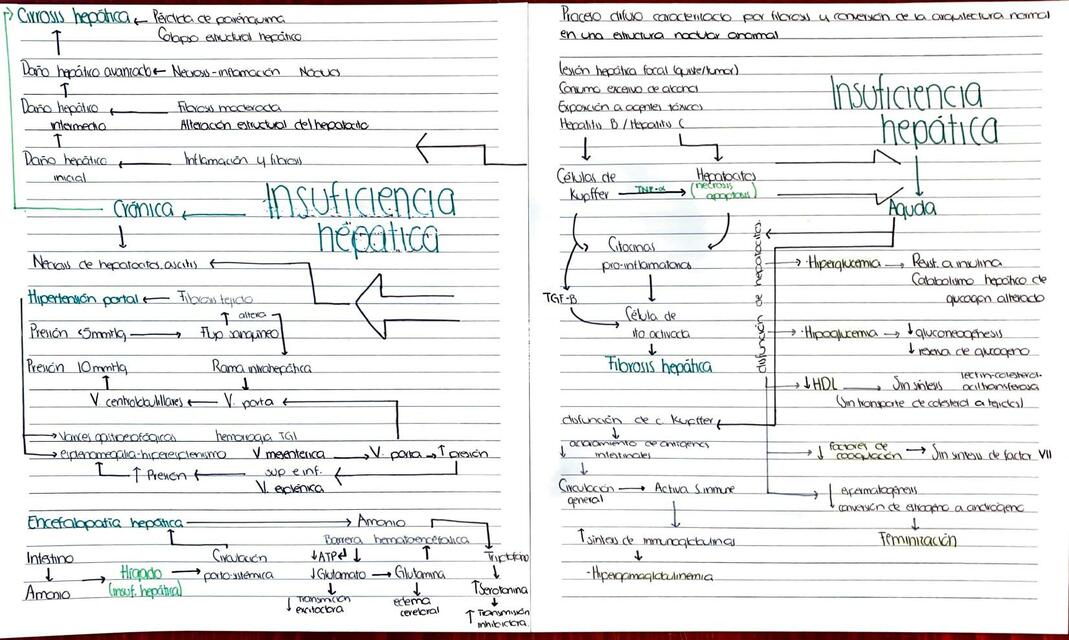 Cirrosis hepática ← Pérdida de parénquima
Colapso estructural hepático
Daño hepático avanzado ← Necrosis-inflamación
Daño hepático ← Fibrosis moderada
intermedio Alteración estructural del hepatocito
Daño hepático ← Inflamación y fibrosis
inicial
Crónica ← Insuficiencia
hepática
Necrosis de hepatocitos, ascitis
Hipertensión portal ← Fibrosis tejido
↑ altera
Presión <5mmHg → Flujo sanguíneo
Presión 10mmHg Rama intrahepática
V. centrolobulillares ← V. porta
→ Varices gastroesofágicas hemorragia TGI
→ esplenomegalia-hiperesplenismo V mesentérica → V. porta → ↑ presión
↑ Presión ← sup e inf.
V. esplénica
Encefalopatía hepática → Amonio
Barrera hematoencefálica
Intestino Circulación ↓ATP Triptófano
Hígado → porto-sistémica ↓Glutamato → Glutamina
Amonio → (insuf. hepática) ↑Serotonina
↓ Transmisión excitadora edema cerebral ↑ Transmisión inhibidora.
Proceso difuso caracterizado por fibrosis y conversión de la arquitectura normal
en una estructura nodular anormal
Lesión hepática focal (quiste/tumor)
Consumo excesivo de alcohol
Exposición a agentes tóxicos
Hepatitis B / Hepatitis C
Insuficiencia
hepática
Células de Hepatocitos
Kupffer TNF-α → (necrosis
apoptosis)
Aguda
Citocinas
pro-inflamatorias
TGF-B
Célula de
ito activada
Fibrosis hepática
disfunción de hepatocitos
→ Hiperglucemia → Resist. a insulina
Catabolismo hepático de
glucagón alterado
→ Hipoglucemia → ↓gluconeogénesis
↓ reserva de glucógeno
→ ↓HDL → Sin síntesis lecitin-colesterol-
aciltransferasa
(Sin transporte de colesterol a tejidos)
disfunción de c. Kupffer
↓ aclaramiento de antígenos
intestinales
→ ↓ factores de
coagulación → Sin síntesis de factor VII
Circulación → Activa S. inmune
general
↓ espermatogénesis
conversión de estrógeno a andrógeno
Feminización
↑ síntesis de inmunoglobulinas
-Hipergamaglobulinemia